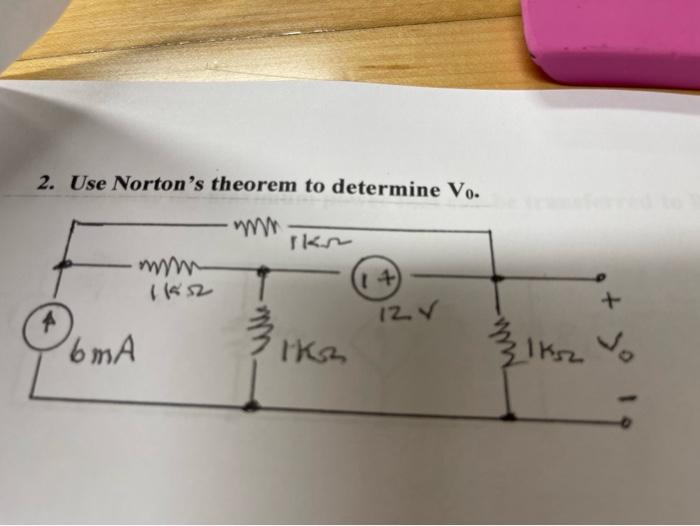 2. Use Norton's theorem to determine V₀.
1KΩ
1KΩ
- +
12 V
6mA
1KΩ
1KΩ
+
V₀
-